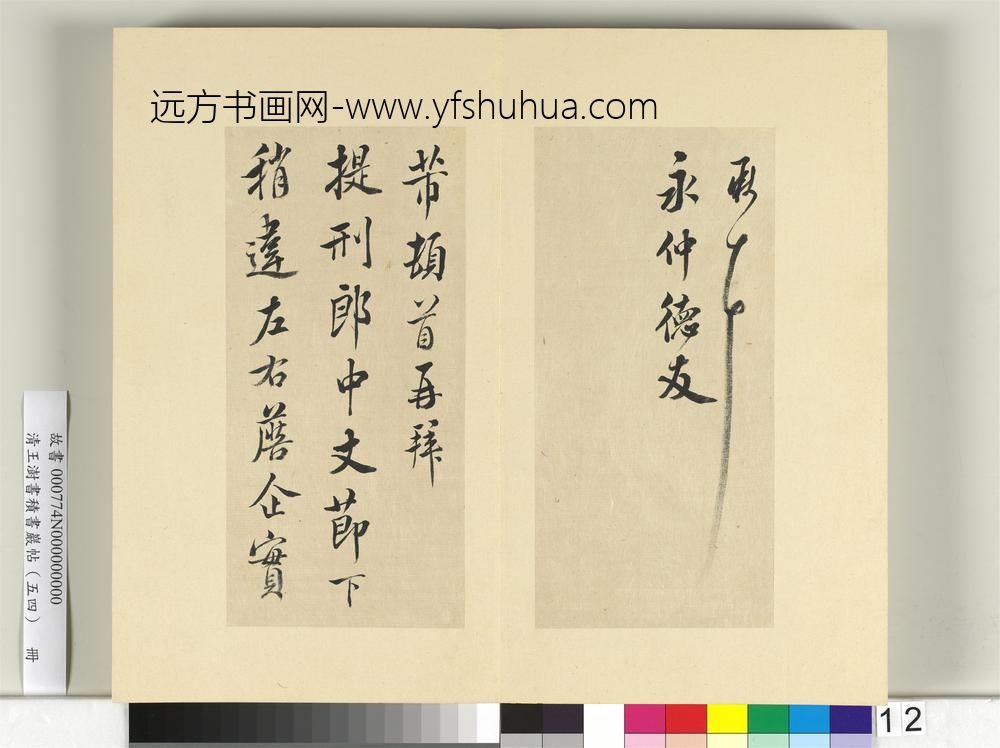 远方书画网-www.yfshuhua.com
永仲德友
芾頓首再拜
提刑郎中丈節下
稍違左右蘑企實
故書 000774N000000000
清王澍書積書巖帖（五四） 冊
12